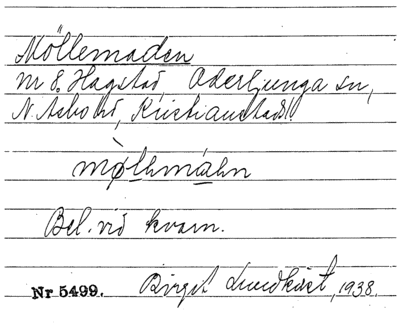 Möllemaden
nr 8, Hagstad, Oderljunga sn,
N. Åsbo hd, Kristianstads l
mǫ́lhmáhn
Bel. vid kvarn.
Nr 5499. Birgit Lundkvist, 1938.